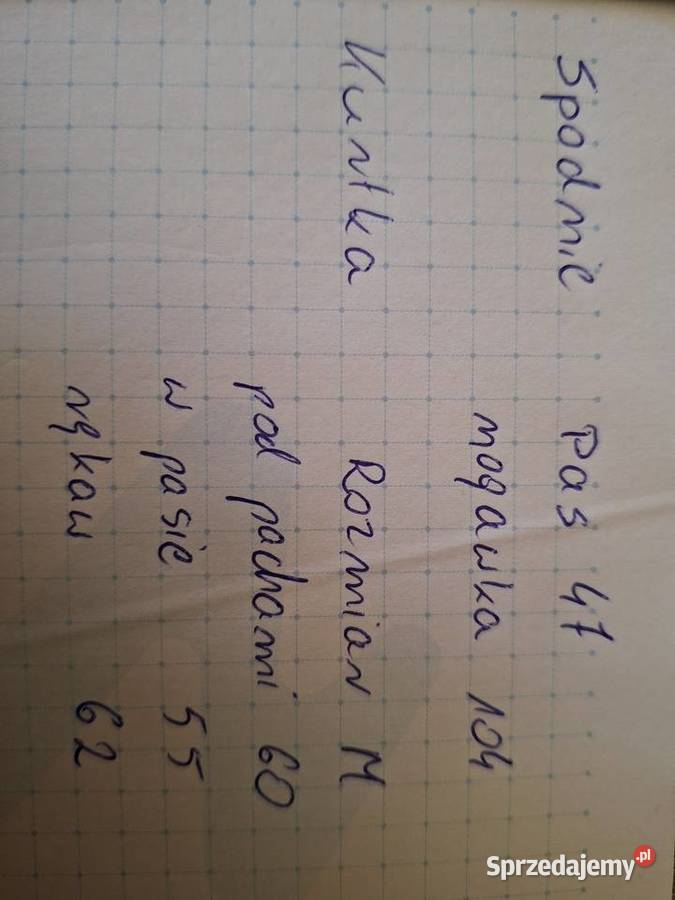 Spodnie Pas 47
nogawka 104
Kurtka Rozmiar M
pod pachami 60
w pasie 55
rękaw 62
Sprzedajemy.pl